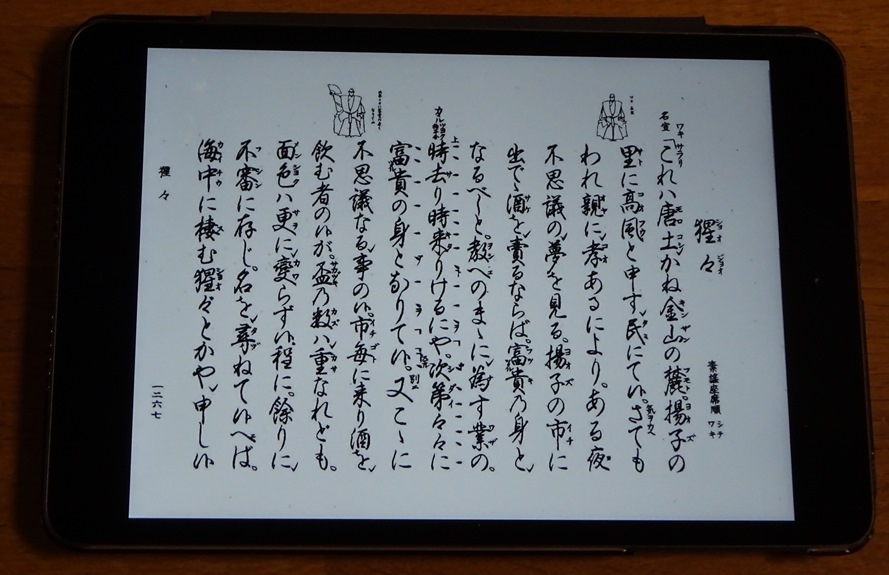 猩々
素謡座席順 シテ ワキ
ワキ サラリ
名宣「これハ唐土かね金山の麓。揚子の
里に高風と申す。民にてい。さても
われ親に孝あるにより。ある夜
不思議の夢を見る。揚子の市に
出でゝ酒を賣るならば。富貴乃身と
なるべしと。教へのまゝに為す業の。
時去り時来りけるにや。次第々々に
富貴の身となりてい。又こゝに
不思議なる事のい。市毎に来り酒を
飲む者のいが。盃乃数ハ重なれども。
面色ハ更に變らずい程に。餘りに
不審に存じ。名を尋ねていへば。
海中に棲む猩々とかや申しい
猩々
一二六七